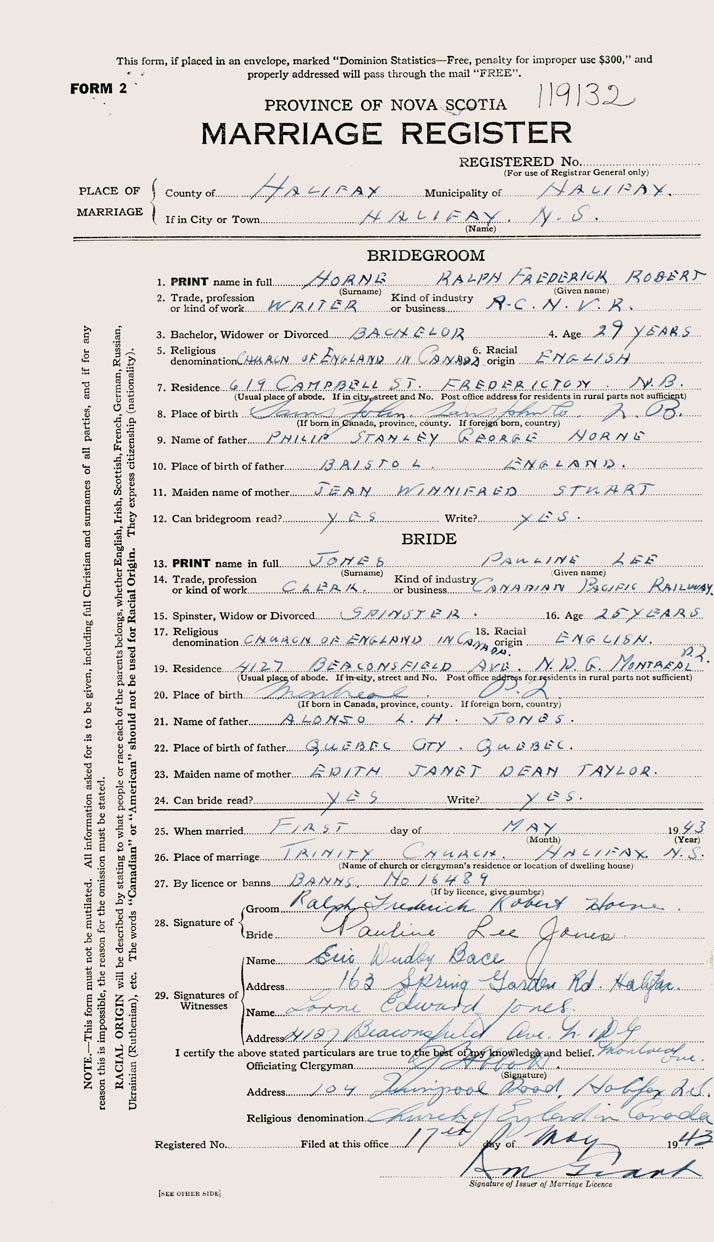 This form, if placed in an envelope, marked "Dominion Statistics—Free, penalty for improper use $300," and
properly addressed will pass through the mail "FREE".
FORM 2
119132
PROVINCE OF NOVA SCOTIA
MARRIAGE REGISTER
REGISTERED No.
(For use of Registrar General only)
PLACE OF MARRIAGE
County of HALIFAX Municipality of HALIFAX.
If in City or Town HALIFAX. N.S.
(Name)
BRIDEGROOM
1. PRINT name in full HORNE RALPH FREDERICK ROBERT
(Surname) (Given name)
2. Trade, profession or kind of work WRITER Kind of industry or business R.C.N.V.R.
3. Bachelor, Widower or Divorced BACHELOR 4. Age 29 YEARS
5. Religious denomination CHURCH OF ENGLAND IN CANADA 6. Racial origin ENGLISH
7. Residence 619 CAMPBELL ST. FREDERICTON. N.B.
(Usual place of abode. If in city, street and No. Post office address for residents in rural parts not sufficient)
8. Place of birth Saint John. Saint John Co. N.B.
(If born in Canada, province, county. If foreign born, country)
9. Name of father PHILIP STANLEY GEORGE HORNE
10. Place of birth of father BRISTOL. ENGLAND.
11. Maiden name of mother JEAN WINNIFRED STUART
12. Can bridegroom read? YES Write? YES.
BRIDE
13. PRINT name in full JONES PAULINE LEE
(Surname) (Given name)
14. Trade, profession or kind of work CLERK. Kind of industry or business CANADIAN PACIFIC RAILWAY
15. Spinster, Widow or Divorced SPINSTER. 16. Age 25 YEARS
17. Religious denomination CHURCH OF ENGLAND IN CANADA. 18. Racial origin ENGLISH.
19. Residence 4127 BEACONSFIELD AVE. N.D.G. MONTREAL P.Q.
(Usual place of abode. If in city, street and No. Post office address for residents in rural parts not sufficient)
20. Place of birth Montreal. P.Q.
(If born in Canada, province, county. If foreign born, country)
21. Name of father ALONSO L.H. JONES.
22. Place of birth of father QUEBEC CITY. QUEBEC.
23. Maiden name of mother EDITH JANET DEAN TAYLOR.
24. Can bride read? YES Write? YES.
25. When married FIRST day of MAY 1943
(Month) (Year)
26. Place of marriage TRINITY CHURCH. HALIFAX N.S.
(Name of church or clergyman's residence or location of dwelling house)
27. By licence or banns BANNS. No 16489
(If by licence, give number)
28. Signature of
Groom Ralph Frederick Robert Horne.
Bride Pauline Lee Jones.
29. Signatures of Witnesses
Name Eric Bace
Address 163 Spring Garden Rd. Halifax.
Name Lorne Edward Jones.
Address 4127 Beaconsfield Ave. N.D.G
Montreal
I certify the above stated particulars are true to the best of my knowledge and belief.
Officiating Clergyman
(Signature)
Address 104 Road, Halifax N.S.
Religious denomination Church of England in Canada
Registered No. Filed at this office 17th day of May 1943
Grant
Signature of Issuer of Marriage Licence
[SEE OTHER SIDE]
NOTE.—This form must not be mutilated. All information asked for is to be given, including full Christian and surnames of all parties, and if for any
reason this is impossible, the reason for the omission must be stated.
RACIAL ORIGIN will be described by stating to what people or race each of the parents belongs, whether English, Irish, Scottish, French, German, Russian,
Ukrainian (Ruthenian), etc. The words "Canadian" or "American" should not be used for Racial Origin. They express citizenship (nationality).